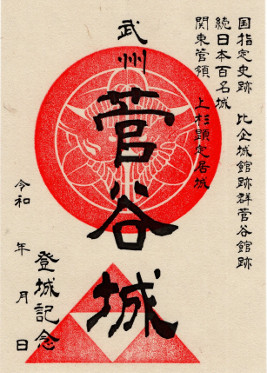 国指定史跡 比企城館跡群菅谷館跡
続日本百名城
関東管領 上杉顕定居城
武州
菅谷城
登城記念
令和 年 月 日